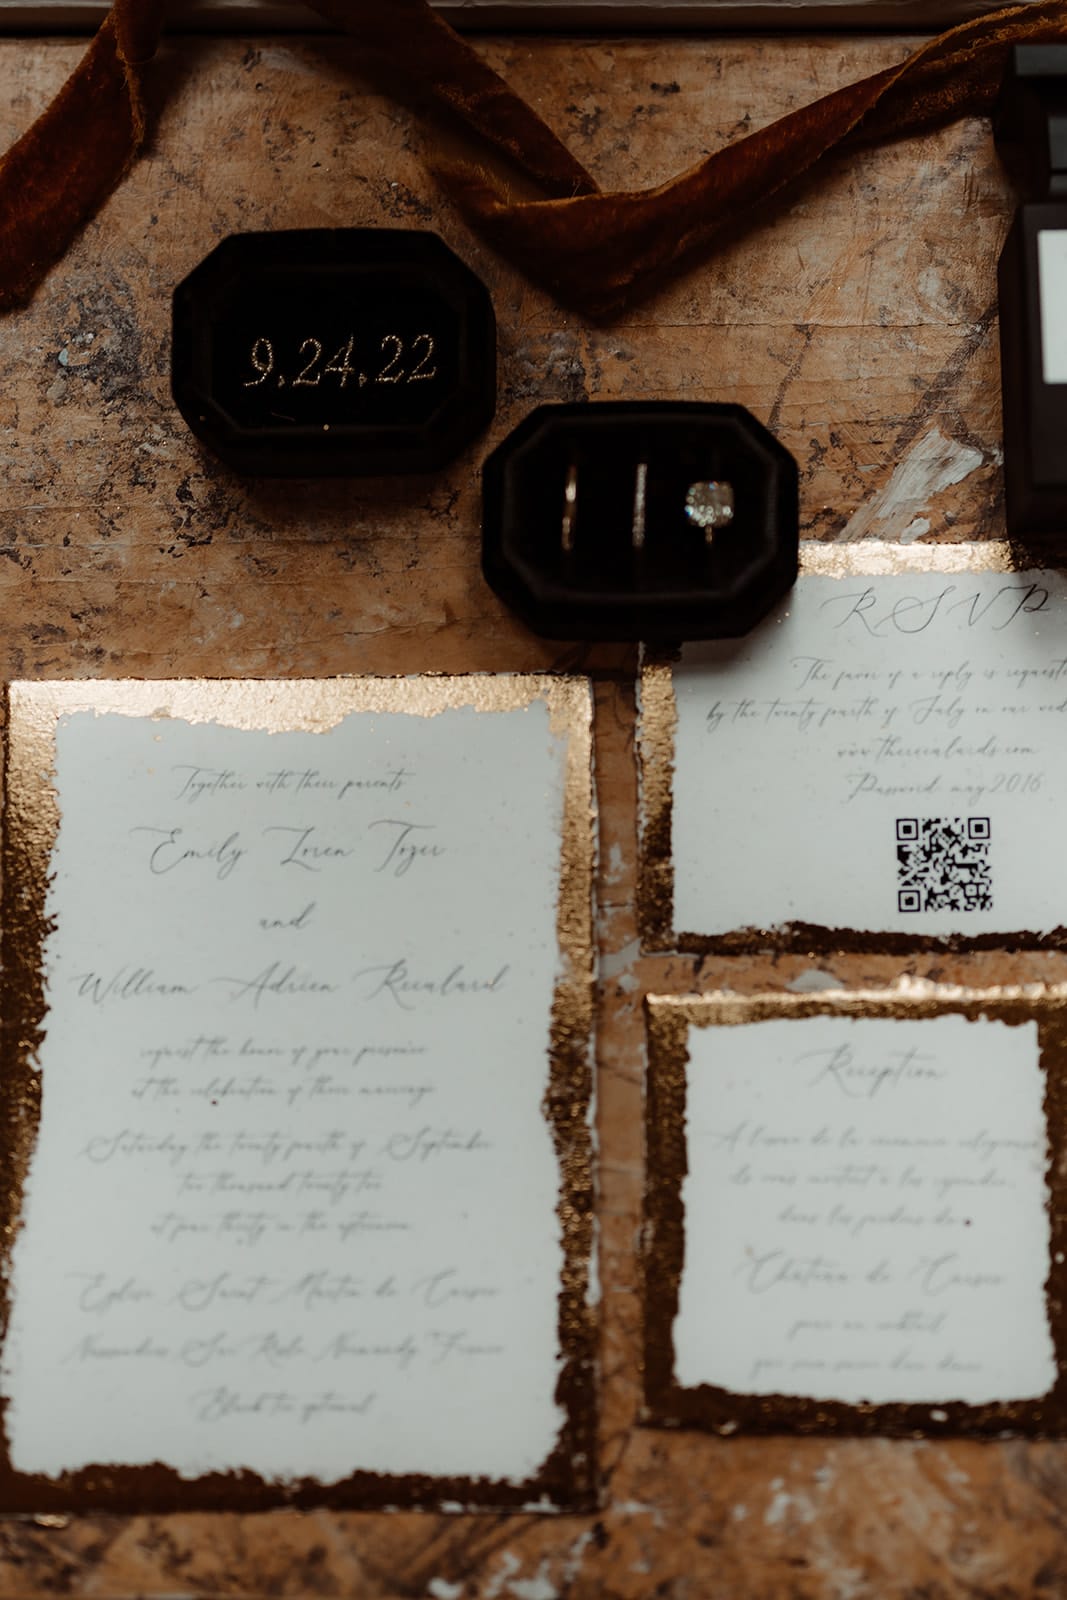 9.24.22
RSVP
The favor of a reply is requested
by the twenty fourth of July on our wed
Password: may2016
Together with their parents
Emily Loren Tozer
and
William Adrien
request the honor of your presence
at the celebration of their marriage
Saturday the twenty fourth of September
two thousand twenty two
at four thirty in the afternoon
Eglise Saint Martin de
Normandy France
Black tie optional
Reception
A l'issue de la ceremonie religieuse
dans les jardins du
Château de
pour un cocktail